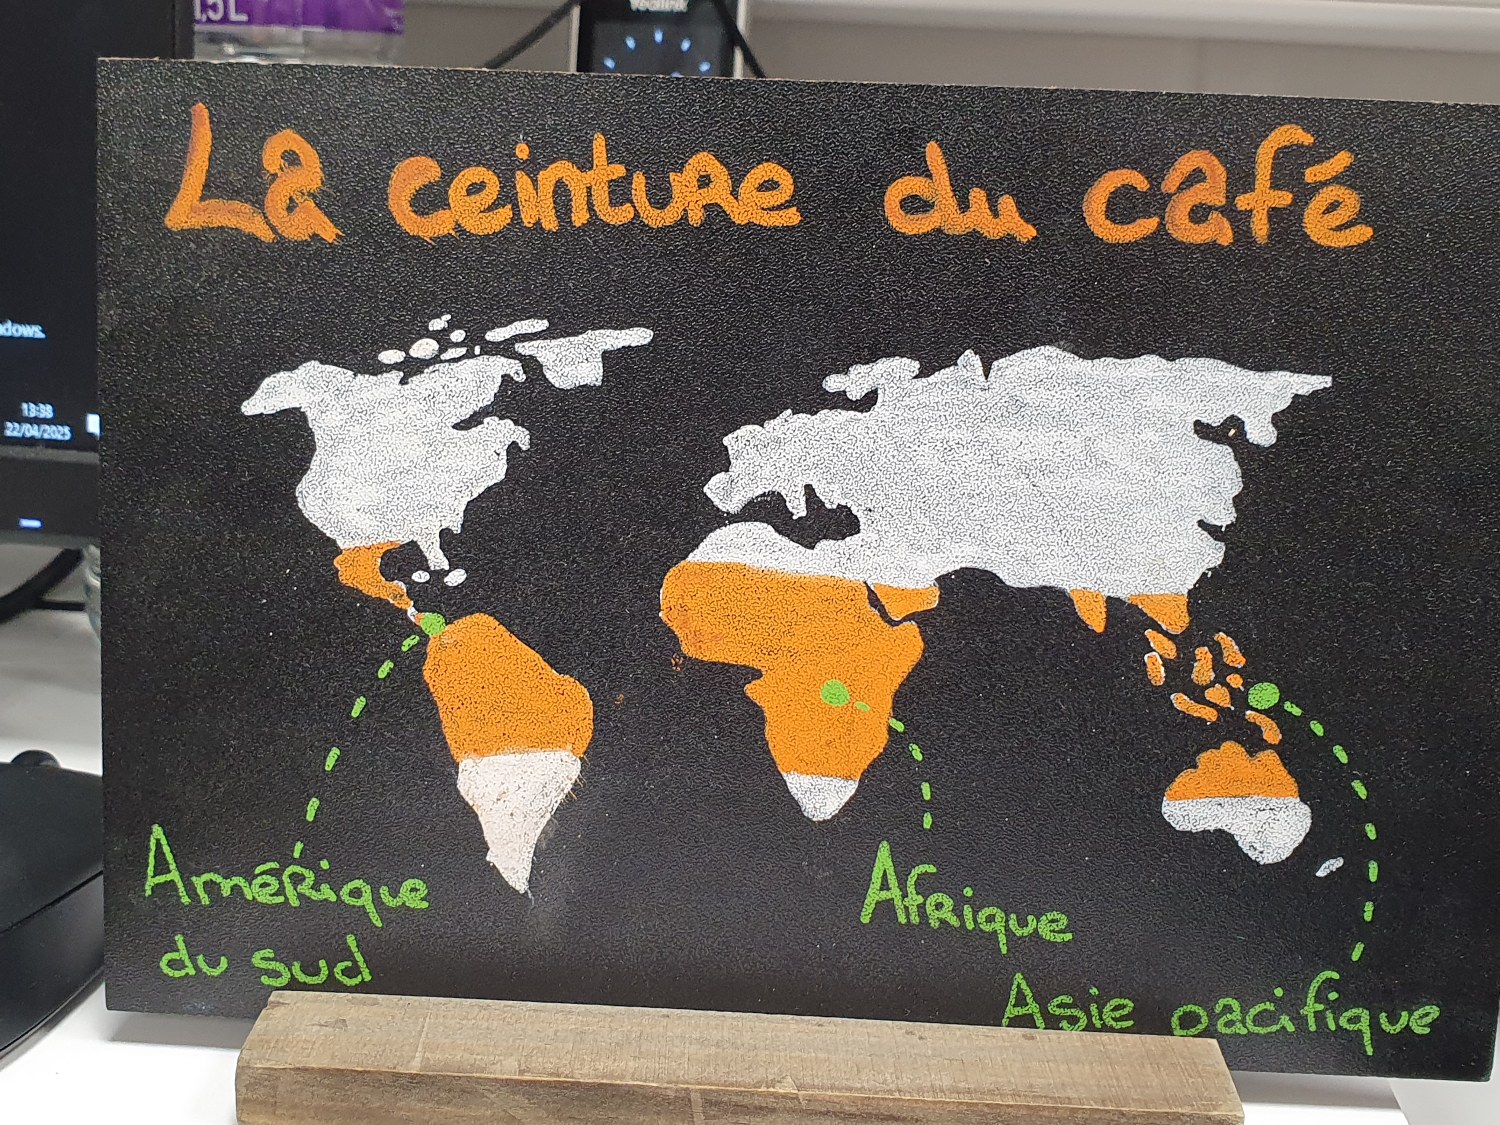 1,5L
Yealink
La ceinture du café
dows.
13:38
22/04/2025
Amérique
du sud
Afrique
Asie pacifique